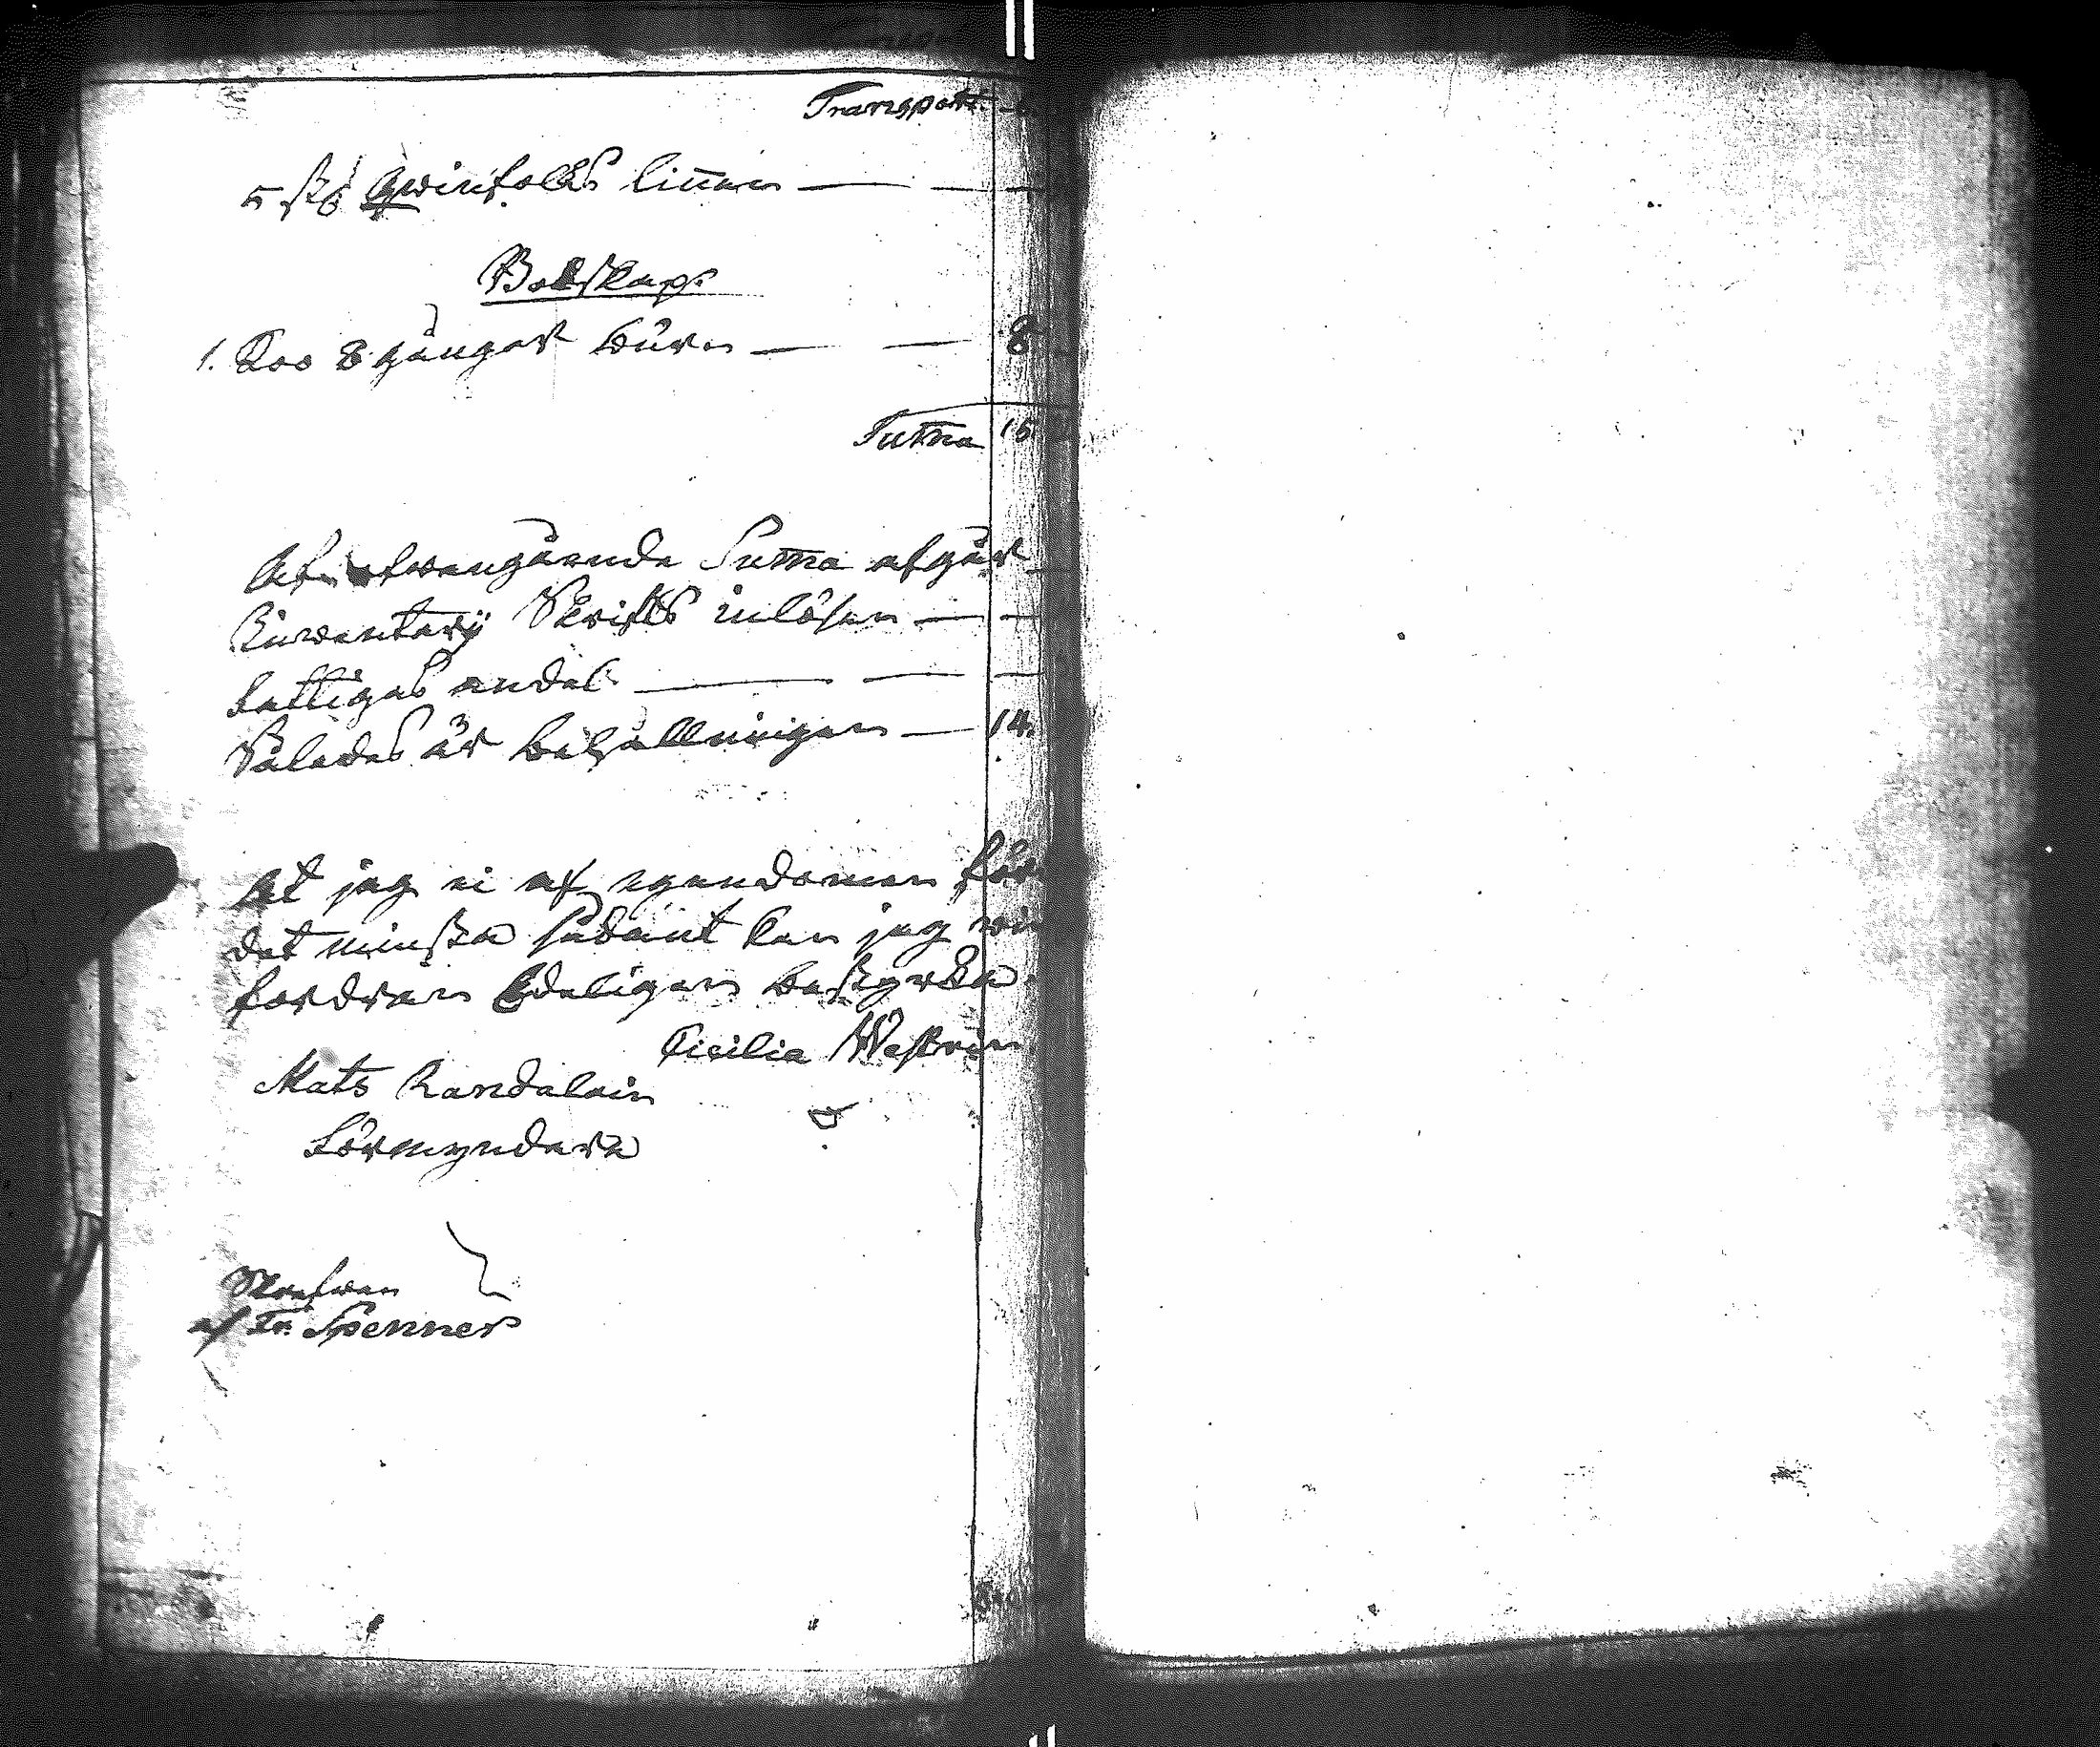 Transport.
5 st: Qwinfolks linnen
Boskap.
1. Koo 8 gånger buren 8
Suma 15
Af ofwangående Suma afgår
Inwentary Skrifts inlösen
fattigas andel
Således är behållningen 14.
At jag ei af egendomen
det minsta sådant kan jag
fordran Edeligen bestyrka.
Cicilia Westrin
Mats Randelain
Förmyndare
Skrefwen
af Fr. Spenner